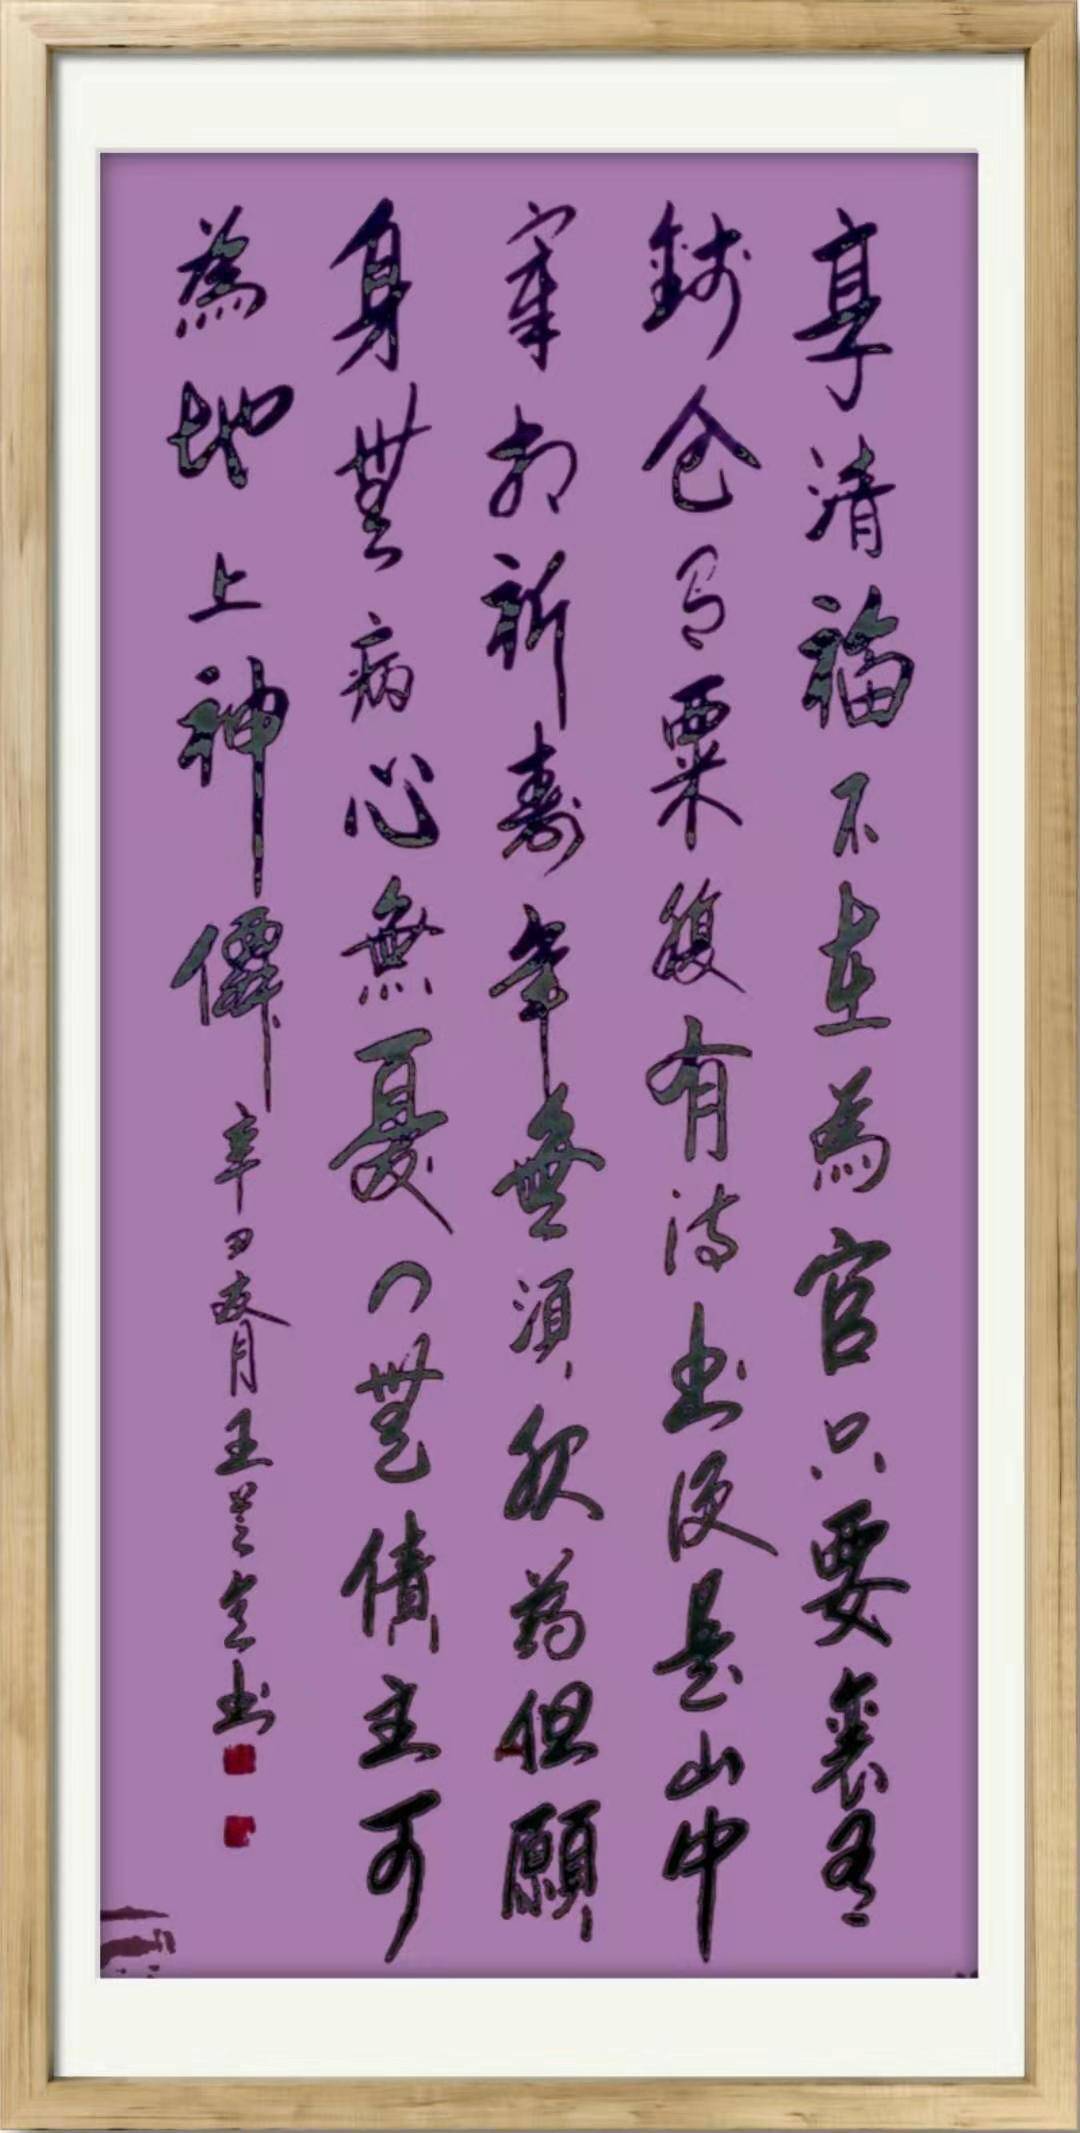 享清福不在為官只要囊有
錢仓有粟腹有诗书便是山中
宰相祈壽年無須服药但願
身無病心無憂门無債主可
為地上神僊 辛丑月王书